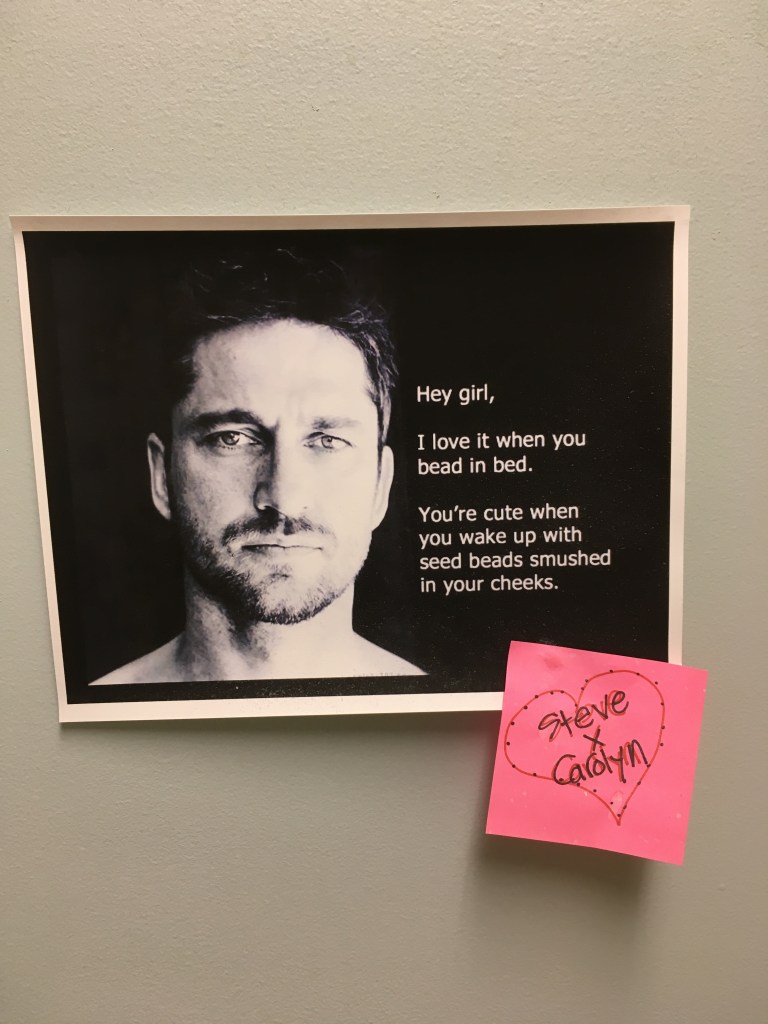 Hey girl,
I love it when you
bead in bed.
You're cute when
you wake up with
seed beads smushed
in your cheeks.
Steve
x
Carolyn